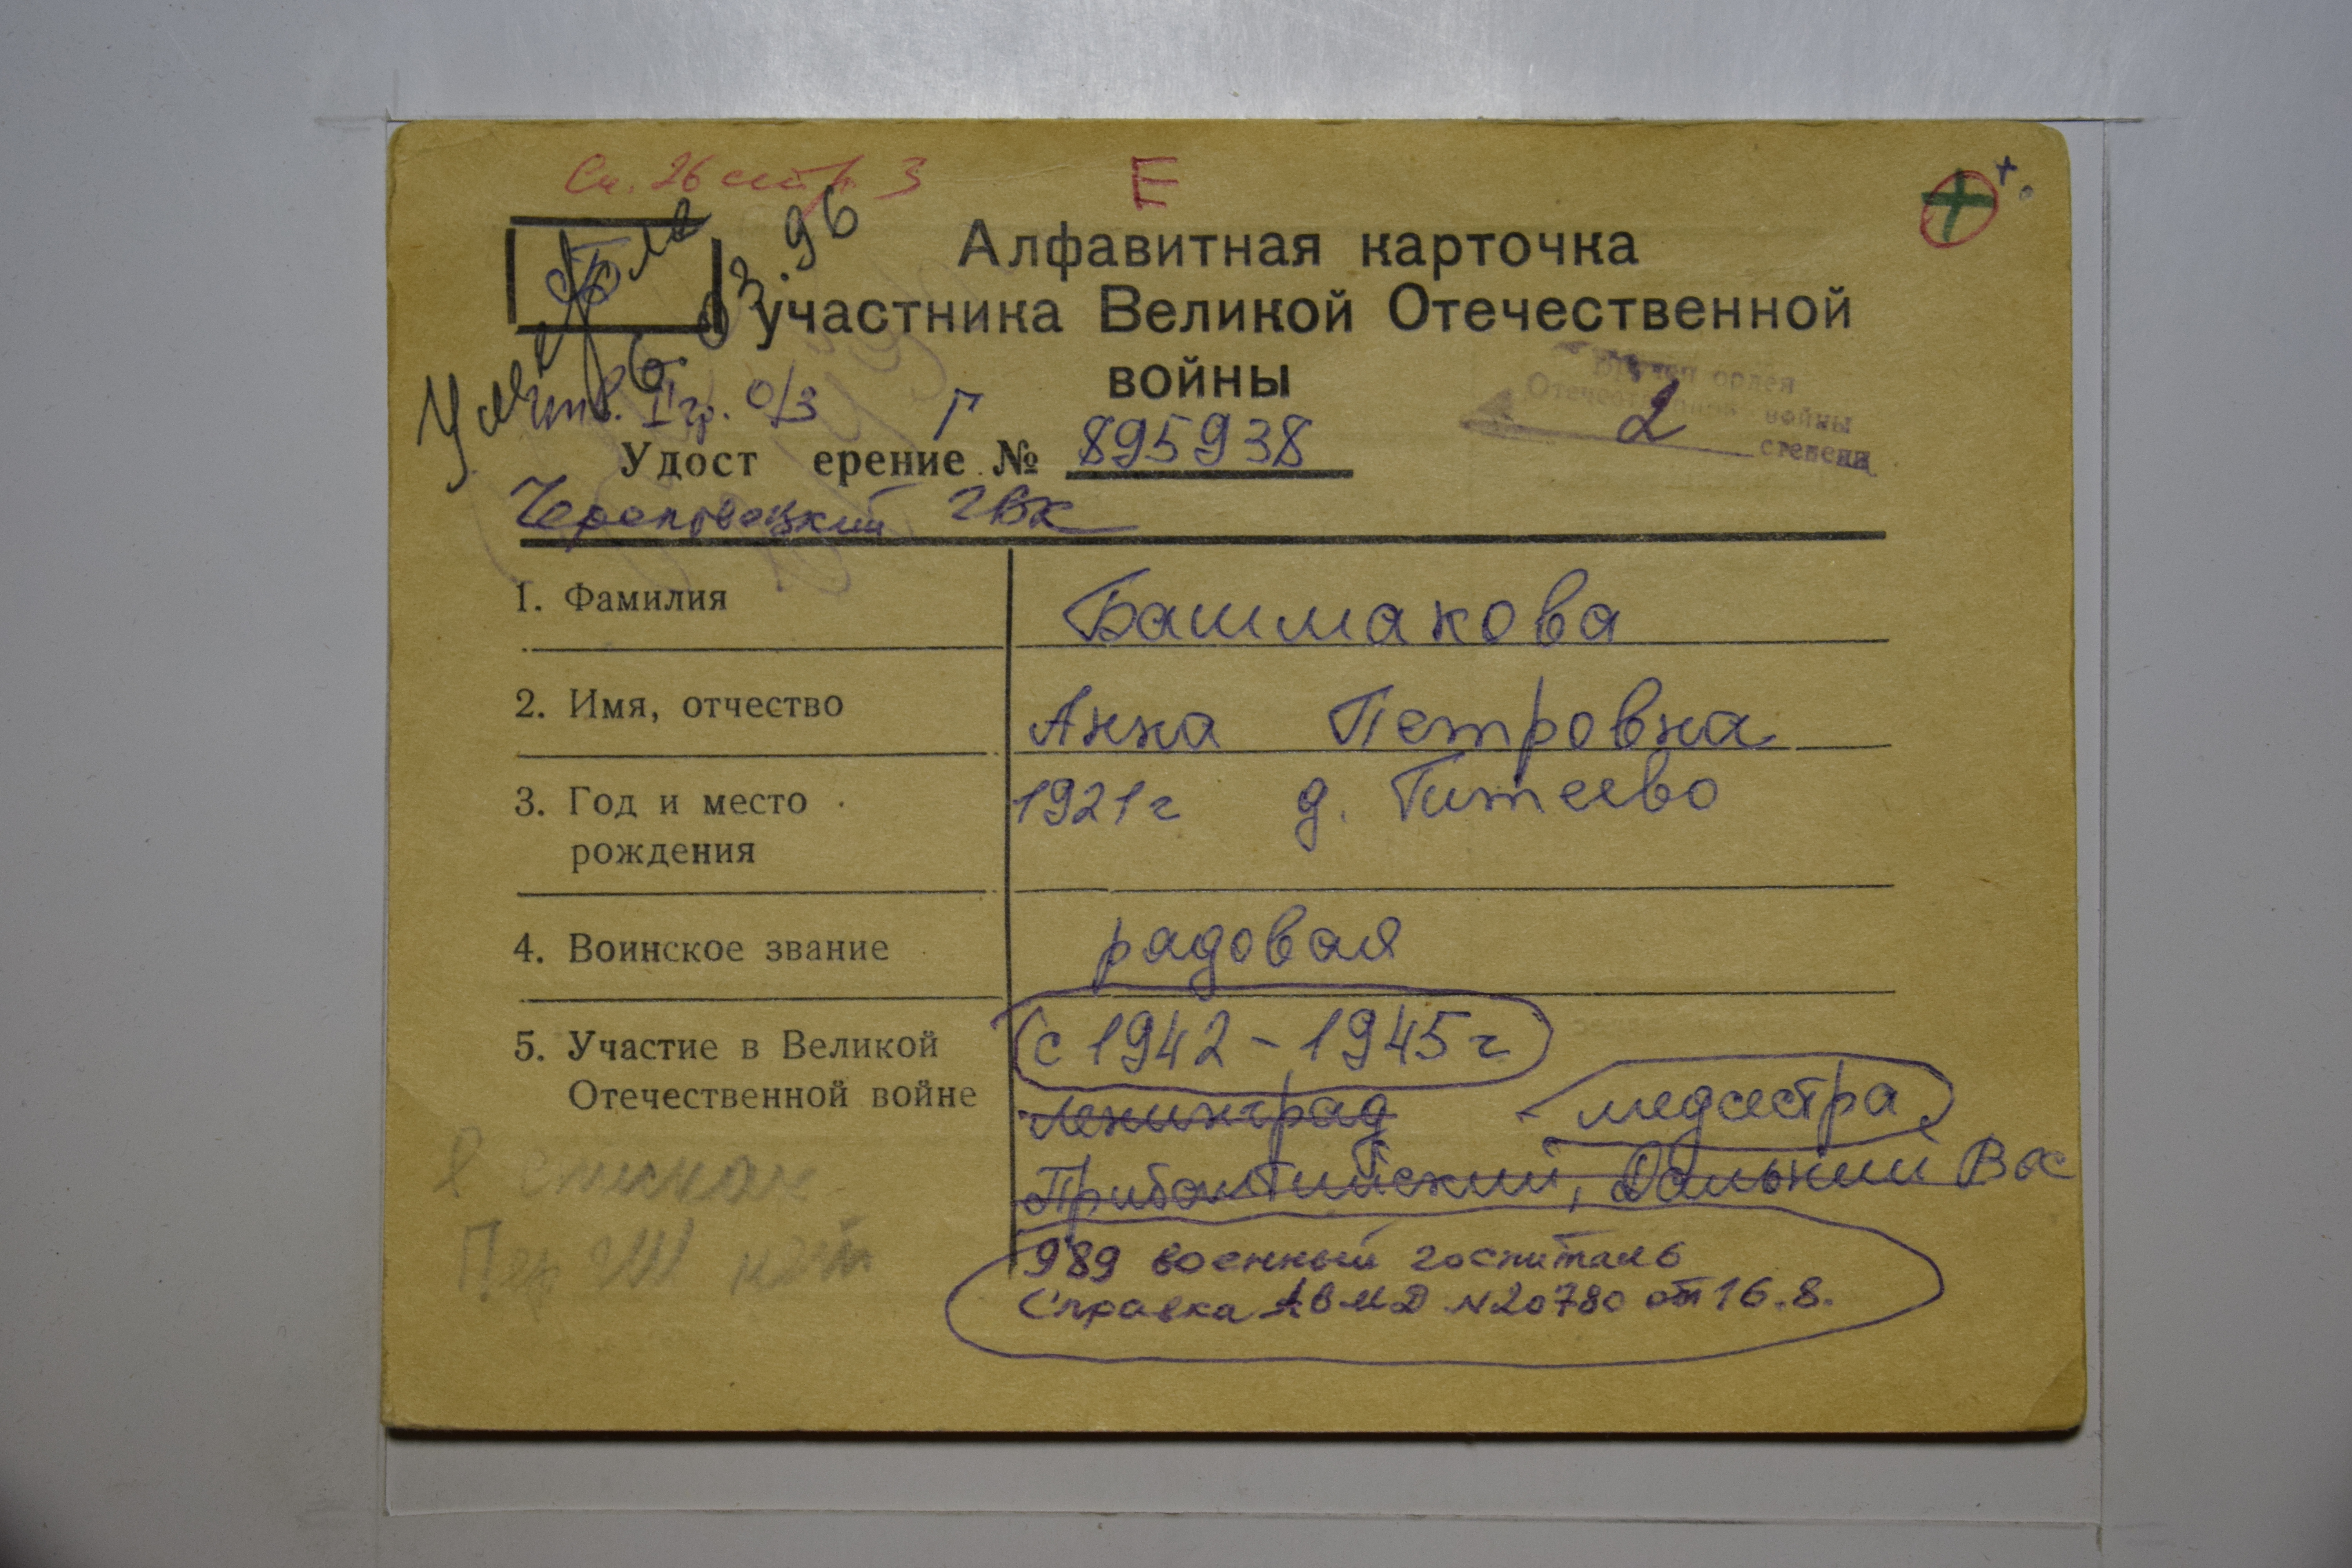 Ст. 26 сит 3
Е
Алфавитная карточка
участника Великой Отечественной
войны
Умерла
6.03.96
инв. II гр. о/з
Г
Удост ерение № 895938
ордея
Отечеств войны
2 степени
Череповецкий ГВК
1. Фамилия
Башмакова
2. Имя, отчество
Анна Петровна
3. Год и место
рождения
1921 г д. Питеево
4. Воинское звание
радовая
5. Участие в Великой
Отечественной войне
с 1942 - 1945 г
Ленинград - медсестра
Прибалтийский, Дальний Вос
989 военный госпиталь
Справка АВМД N20780 от 16.8.